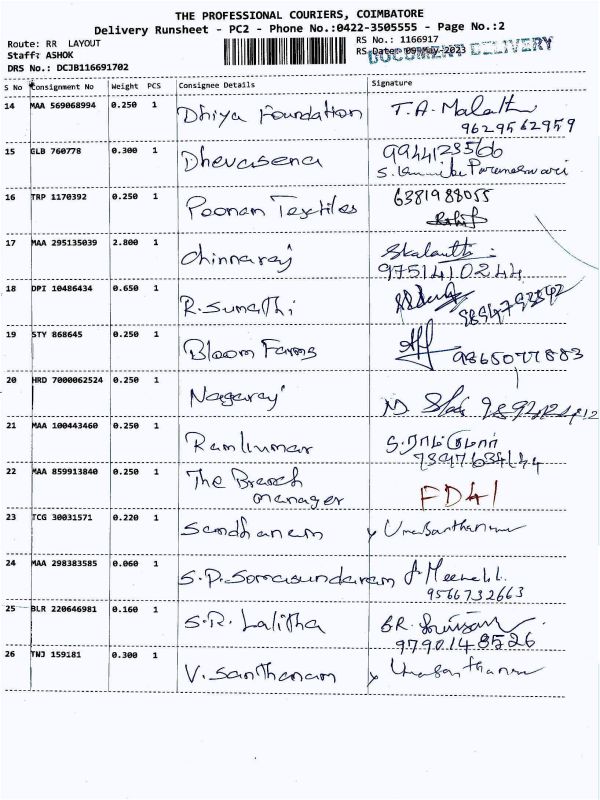 THE PROFESSIONAL COURIERS, COIMBATORE
Delivery Runsheet - PC2 - Phone No.:0422-3505555 - Page No.:2
Route: RR LAYOUT
RS No.: 1166917
Staff: ASHOK
RS Date: 09-May-2023
DOCUMENT DELIVERY
DRS No.: DCJB116691702
S No Consignment No Weight PCS Consignee Details Signature
14 MAA 569068994 0.250 1 Dhiya Foundation T.A. Malathi
9629562959
15 GLB 760778 0.300 1 Dhevasena 9944123566
Parameshwari
16 TRP 1170392 0.250 1 Poonam Textiles 6381988055
17 MAA 295135039 2.800 1 Chinnaraj
9751410244
18 DPI 10486434 0.650 1 R. Sumathi
19 STY 868645 0.250 1 Bloom Farms 9865077883
20 HRD 7000062524 0.250 1 Nagaraj
21 MAA 100443460 0.250 1 Ramkumar S.ராம்குமார்
7397634144
22 MAA 859913840 0.250 1 The Branch manager FD41
23 TCG 30031571 0.220 1 Sandhanam
24 MAA 298383585 0.060 1 S.P. Somasundaram
9566732663
25 BLR 220646981 0.160 1 S.R. Lalitha
9790148526
26 TNJ 159181 0.300 1 V. Santhanam